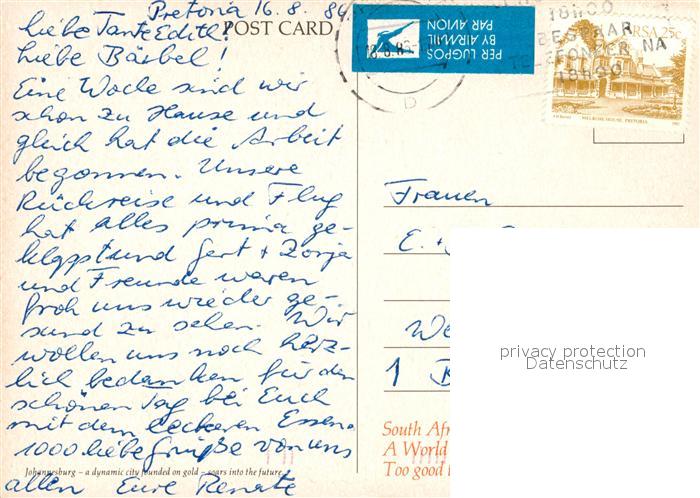 Pretoria 16.8.86
POST CARD
Liebe Tante Edith!
Liebe Bärbel!
Eine Woche sind wir
schon zu Hause und
gleich hat die Arbeit
begonnen. Unsere
Rückreise und Flug
hat alles prima ge-
klappt und Gert + Zonja
und Freunde waren
froh uns wieder ge-
sund zu sehen. Wir
wollen uns noch herz-
lich bedanken für den
schönen Tag bei Euch
mit dem leckeren Essen.
1000 liebe Grüße von uns
allen Eure Renate
Johannesburg – a dynamic city founded on gold – soars into the future
PER LUGPOS
BY AIRMAIL
PAR AVION
D
18H00
BESPAAR
TELEFONEER NA
18H00
RSA 25c
MELROSE HOUSE, PRETORIA
Frauen
E. +
We
1 B
South Afr
A World
Too good t
privacy protection
Datenschutz